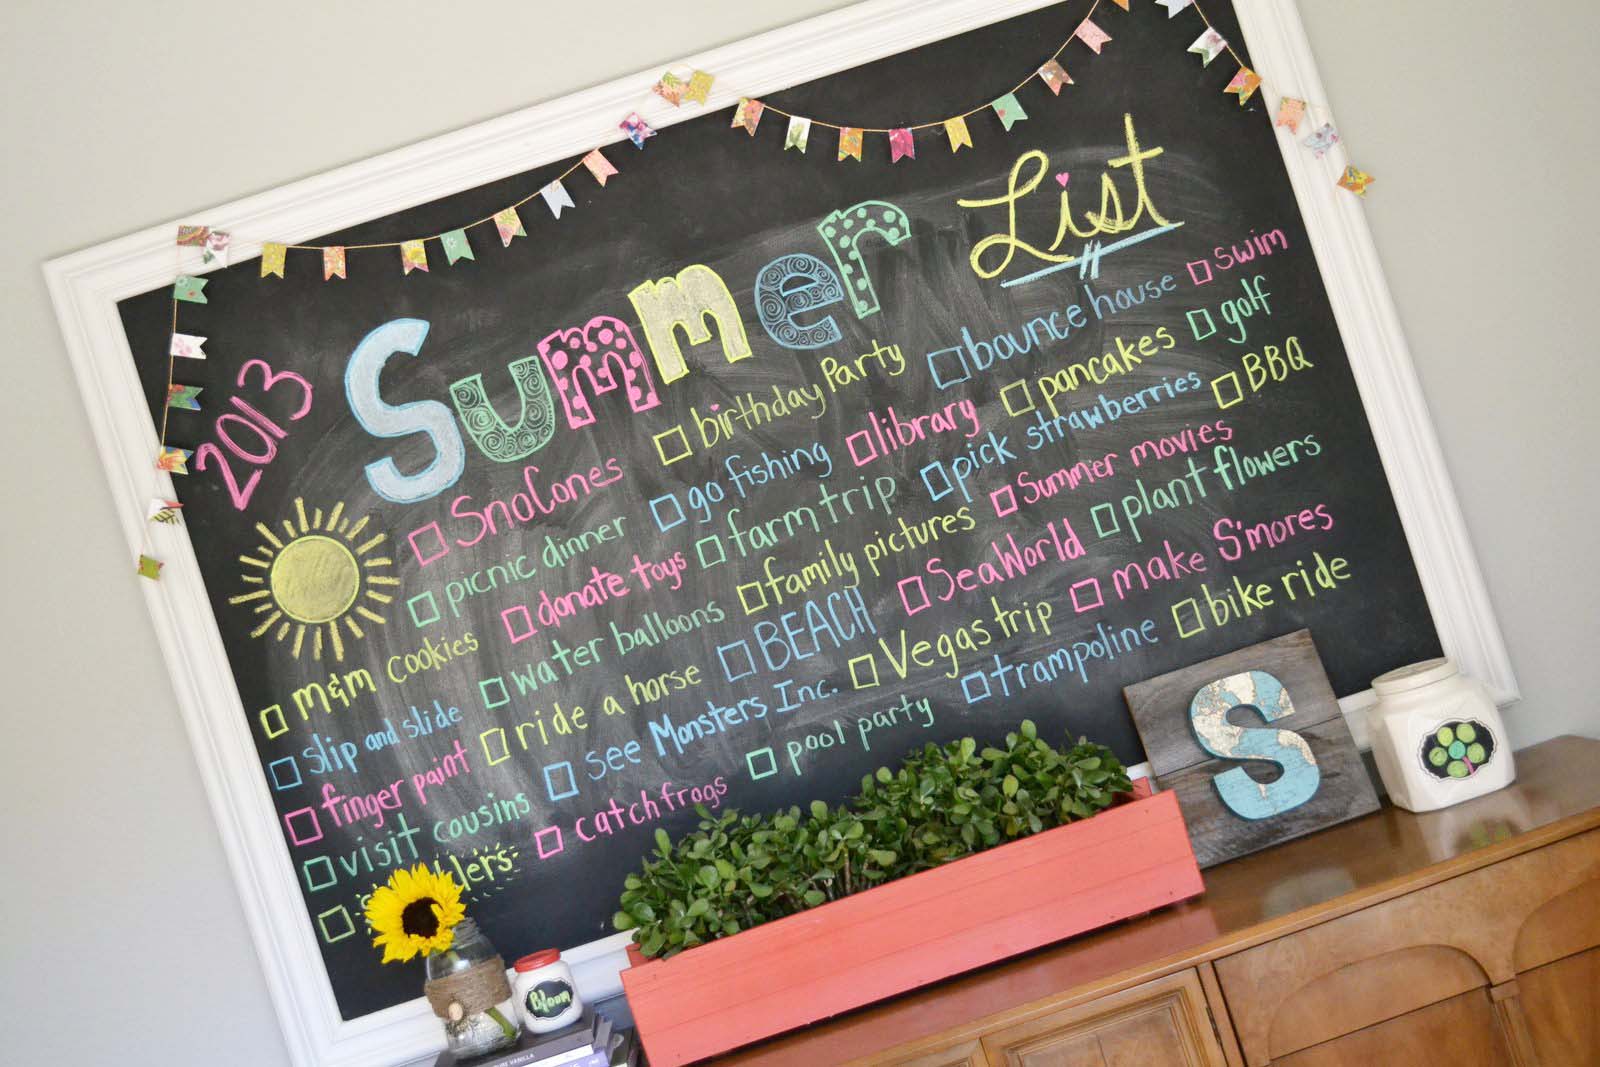 2013
Summer List
SnoCones
birthday Party
bounce house
swim
picnic dinner
go fishing
library
pancakes
golf
m&m cookies
donate toys
farm trip
pick strawberries
BBQ
slip and slide
water balloons
family pictures
Summer movies
finger paint
ride a horse
BEACH
SeaWorld
plant flowers
visit cousins
see Monsters Inc.
Vegas trip
make S'mores
catch frogs
pool party
trampoline
bike ride
S
Bloom
VANILLA